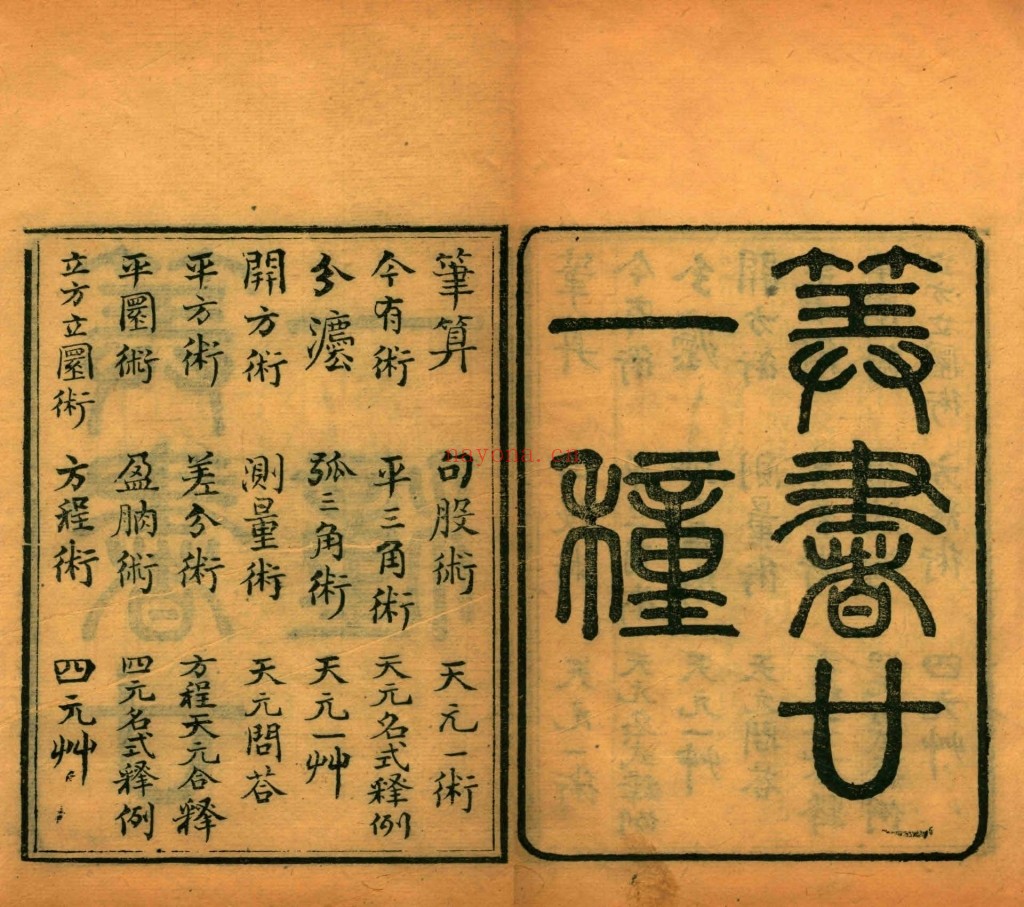 筭書廿
一種
筆算　句股術　天元一術
今有術　平三角術　天元名式釋例
分灋　弧三角術　天元一艸
開方術　測量術　天元問荅
平方術　差分術　方程天元合釋
平圜術　盈朒術　四元名式釋例
立方立圜術　方程術　四元艸
nayona.cn